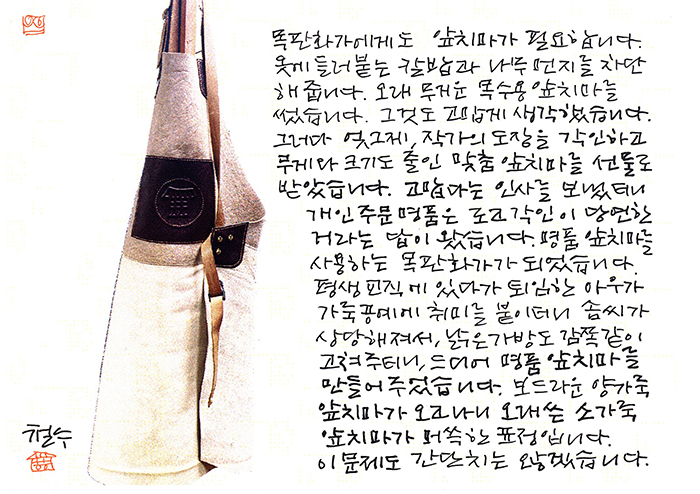 목판화가에게도 앞치마가 필요합니다.
옷에 들러붙는 칼밥과 나무먼지를 차단
해 줍니다. 오래 무거운 목수용 앞치마를
썼습니다. 그것도 고맙게 생각했습니다.
그러다 엊그제, 작가의 도장을 각인하고
무게와 크기도 줄인 맞춤 앞치마를 선물로
받았습니다. 고맙다는 인사를 보냈더니
개인 주문 명품은 로고 각인이 당연한
거라는 답이 왔습니다. 명품 앞치마를
사용하는 목판화가가 되었습니다.
평생 교직에 있다가 퇴임한 아우가
가죽공예에 취미를 붙이더니 솜씨가
상당해져서, 낡은 가방도 감쪽같이
고쳐주더니, 드디어 명품 앞치마를
만들어 주었습니다. 보드라운 양가죽
앞치마가 오고나니 오래쓴 소가죽
앞치마가 머쓱한 표정입니다.
이 문제도 간단치는 않겠습니다.
철수